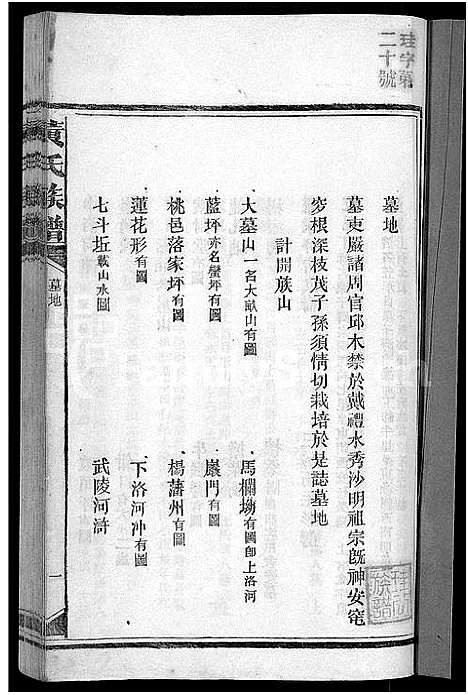 珪字第
二十號
墓地
墓吏嚴諸周官邱木禁於戴禮水秀沙明祖宗旣神安窀
穸根深枝茂子孫須情切栽培於是誌墓地
計開族山
大墓山一名大畝山有圖
馬欄坳有圖卽上洛河
藍坪亦名蠻坪有圖
巖門有圖
桃邑落家坪有圖
楊藩州有圖
蓮花形有圖
下洛河冲有圖
七斗坵載山水圖
武陵河滸
黃氏族譜
墓地
一